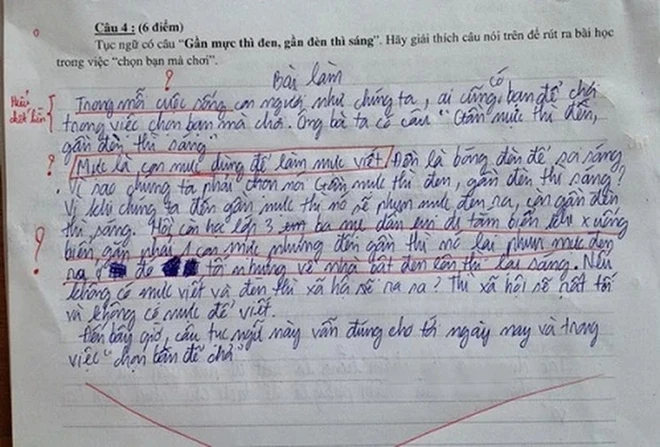 Câu 4 : (6 điểm)
Tục ngữ có câu “Gần mực thì đen, gần đèn thì sáng”. Hãy giải thích câu nói trên để rút ra bài học
trong việc “chọn bạn mà chơi”.
?
Bài làm
Trong mỗi cuộc sống con người như chúng ta, ai cũng có bạn để chơi
trong việc chọn bạn mà chơi. Ông bà ta có câu "Gần mực thì đen,
gần đèn thì sáng"
? Mực là con mực dùng để làm mực viết. Đèn là bóng đèn để soi sáng
Vì sao chúng ta phải chọn nói Gần mực thì đen, gần đèn thì sáng?
Vì khi chúng ta đến gần mực thì nó sẽ phun mực đen ra, còn gần đèn
thì sáng. Hồi còn học lớp 3 em ba mẹ dẫn em đi tắm biển khi xuống
? biển gặp phải 1 con mực nhưng đến gần thì nó lại phun mực đen
ra tối nhưng về nhà bật đèn lên thì lại sáng. Nếu
không có mực viết và đèn thì xã hội sẽ ra sao? Thì xã hội sẽ rất tối
và không có mực để viết.
Đến bây giờ, câu tục ngữ này vẫn đúng cho tới ngày nay và trong
việc "chọn bạn để chơi"